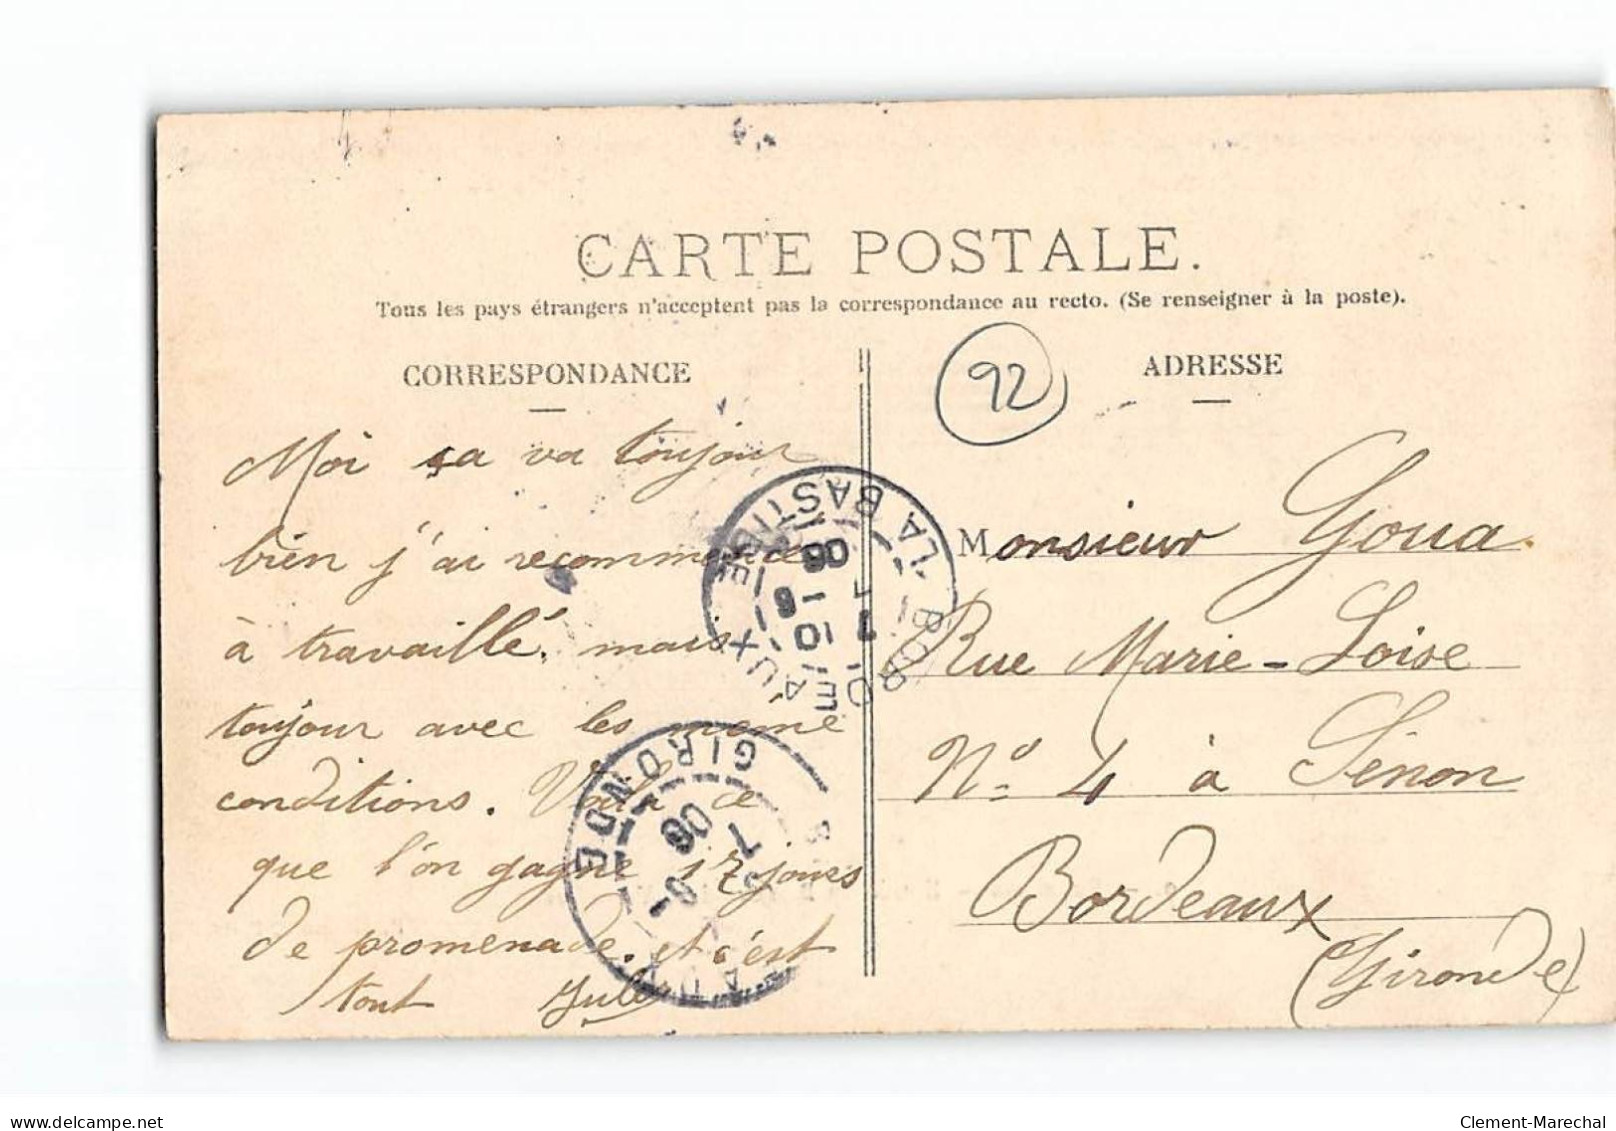 CARTE POSTALE.
Tous les pays étrangers n'acceptent pas la correspondance au recto. (Se renseigner à la poste).
CORRESPONDANCE
Moi ça va toujour
bien j'ai recommence
à travaillé, mais
toujour avec les meme
conditions. Voila ce
que l'on gagne 17 jours
de promenade. et c'est
tout Jules
92
ADRESSE
Monsieur Goua.
Rue Marie-Loise
Nº 4 à Sénon
Bordeaux
(Gironde)
BORDEAUX LA BASTIDE
10
7
06
GIRONDE
7
06
delcampe.net
Clement-Marechal